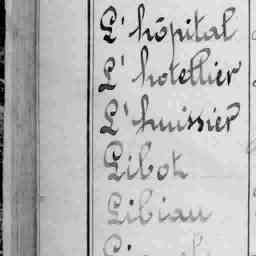 L'hôpital
L'hotellier
L'huissier
Libot
Libiau